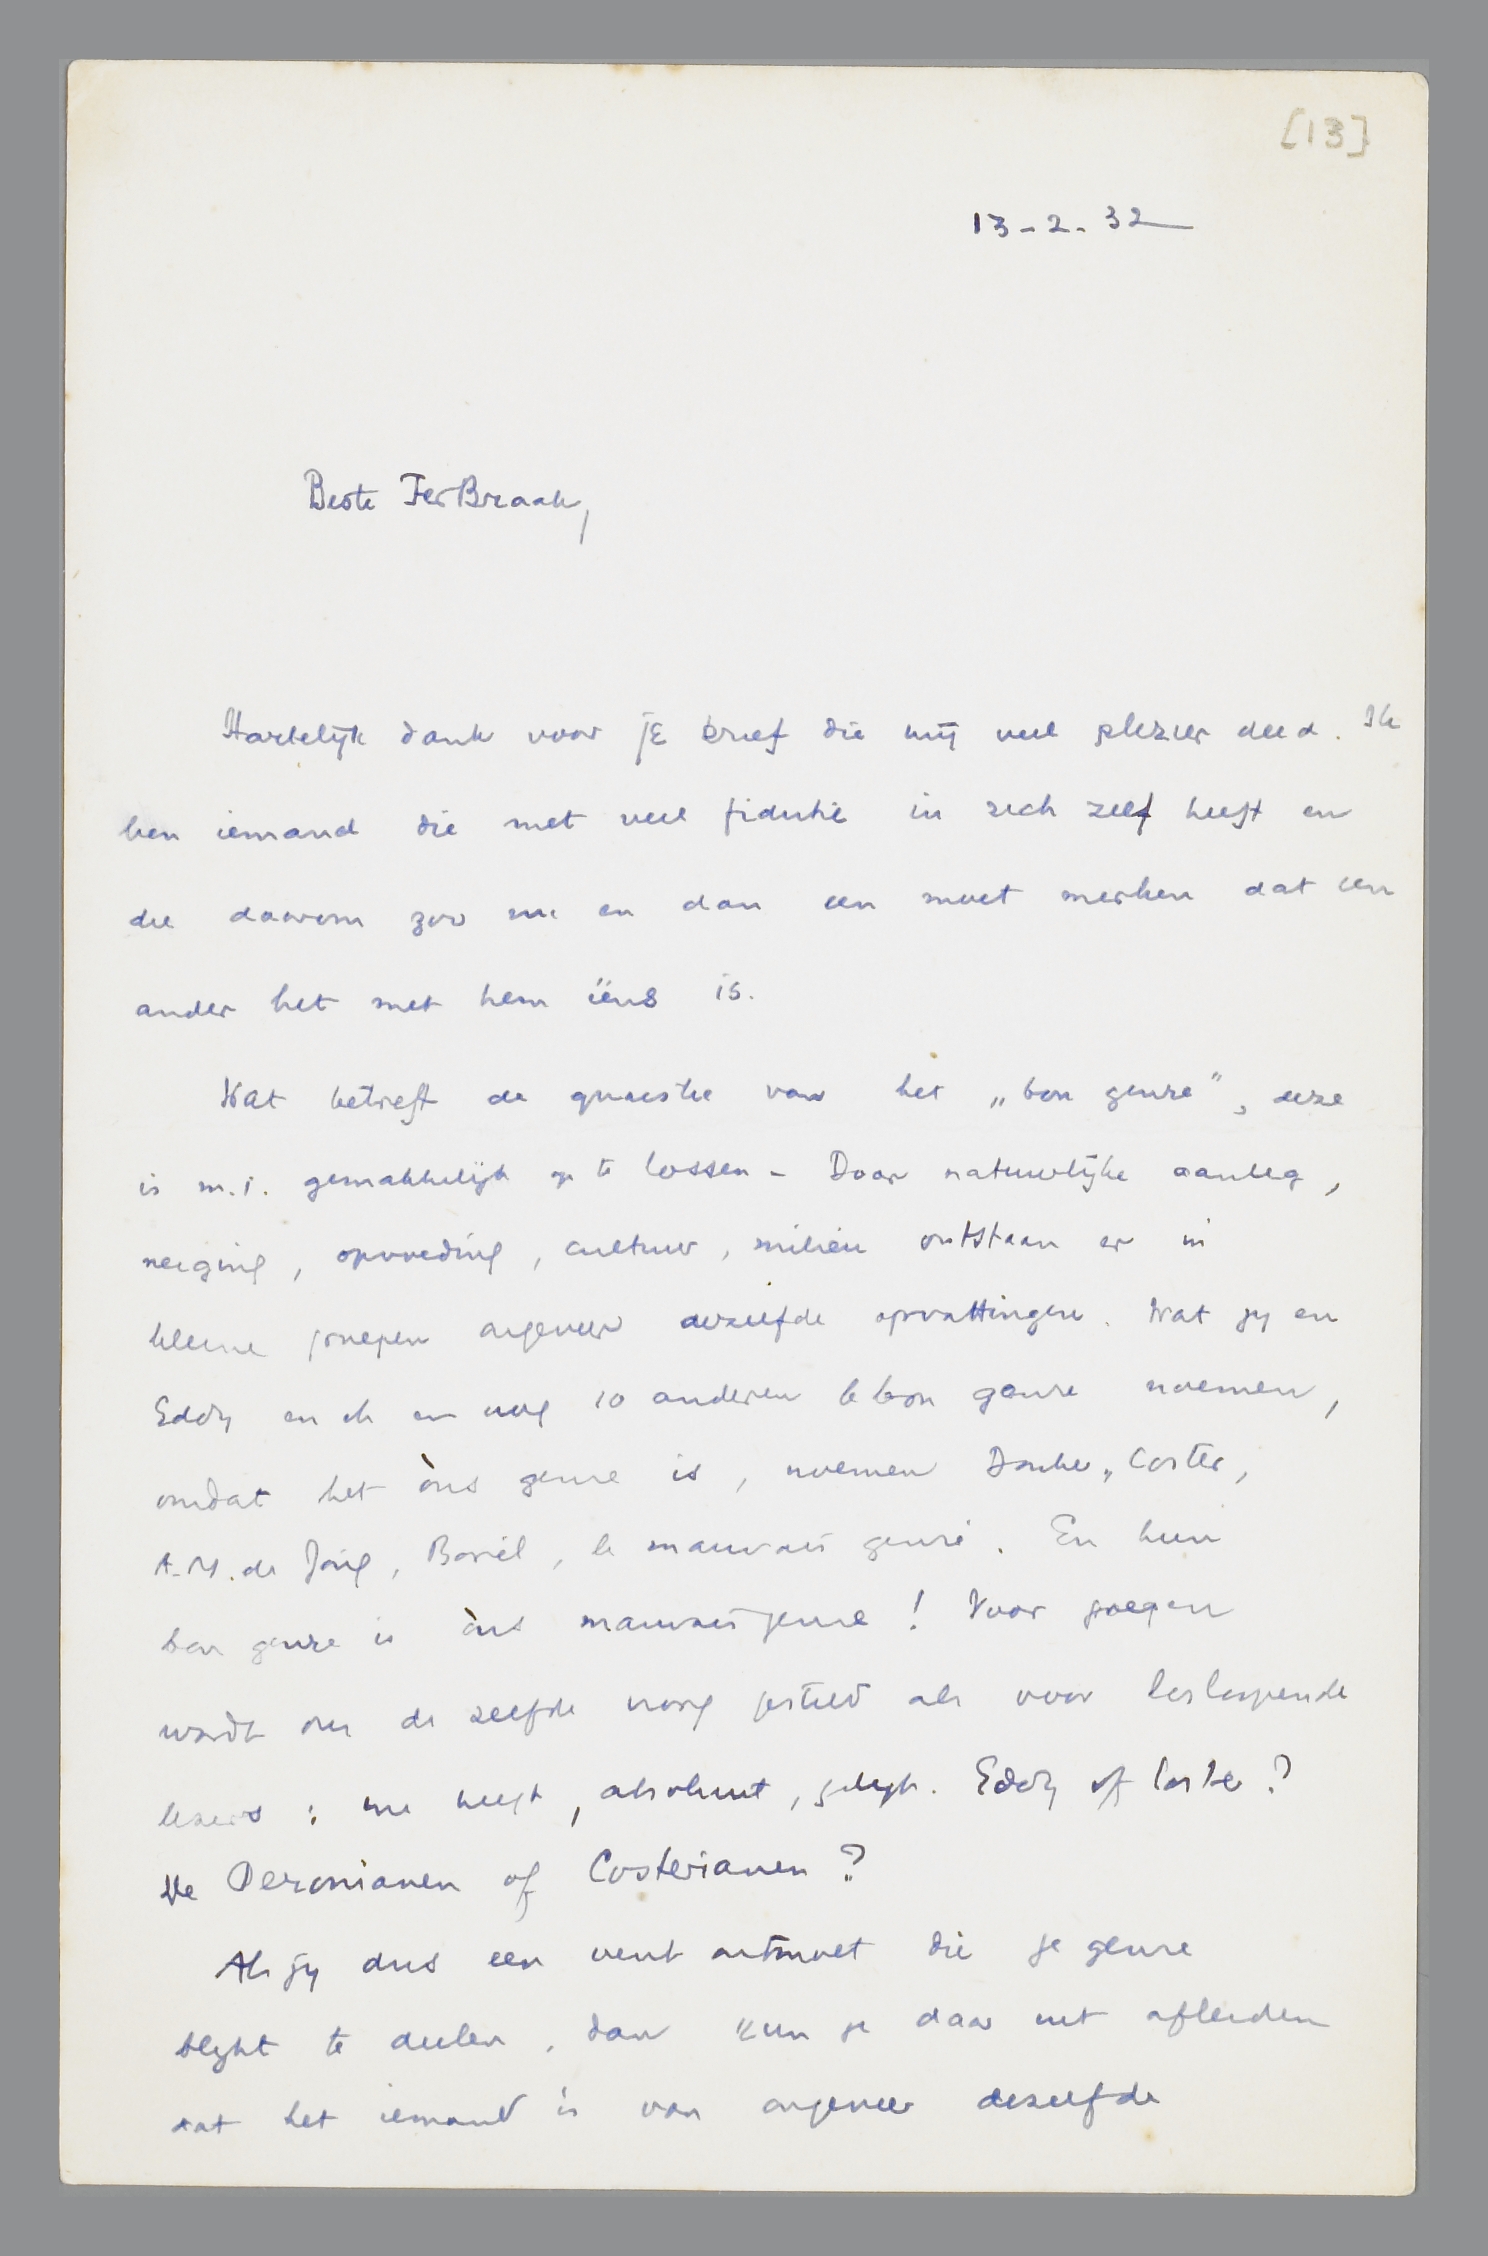 [13]
13-2-32
Beste Ter Braak,
Hartelijk dank voor je brief die mij veel plezier deed. Ik
ben iemand die niet veel fidutie in zich zelf heeft en
die daarom zoo nu en dan een moet merken dat een
ander het met hem ééns is.
Wat betreft de quaestie van het „bon genre”, deze
is m.i. gemakkelijk op te lossen - Door natuurlijke aanleg,
neiging, opvoeding, cultuur, milieu ontstaan er in
kleine groepen ongeveer dezelfde opvattingen. Wat jij en
Eddy en ik en nog 10 anderen le bon genre noemen,
omdat het òns genre is, noemen Donker, Coster,
A.M. de Jong, Borel, le mauvais genre. En hun
bon genre is òns mauvais genre! Voor groepen
wordt nu de zelfde vraag gesteld als voor losloopende
lezers: wie heeft, absoluut, gelijk. Eddy of Coster?
De Peronianen of Costerianen?
Als jij dus een vent ontmoet die je genre
blijkt te deelen, dan kun je daar uit afleiden
dat het iemand is van ongeveer dezelfde